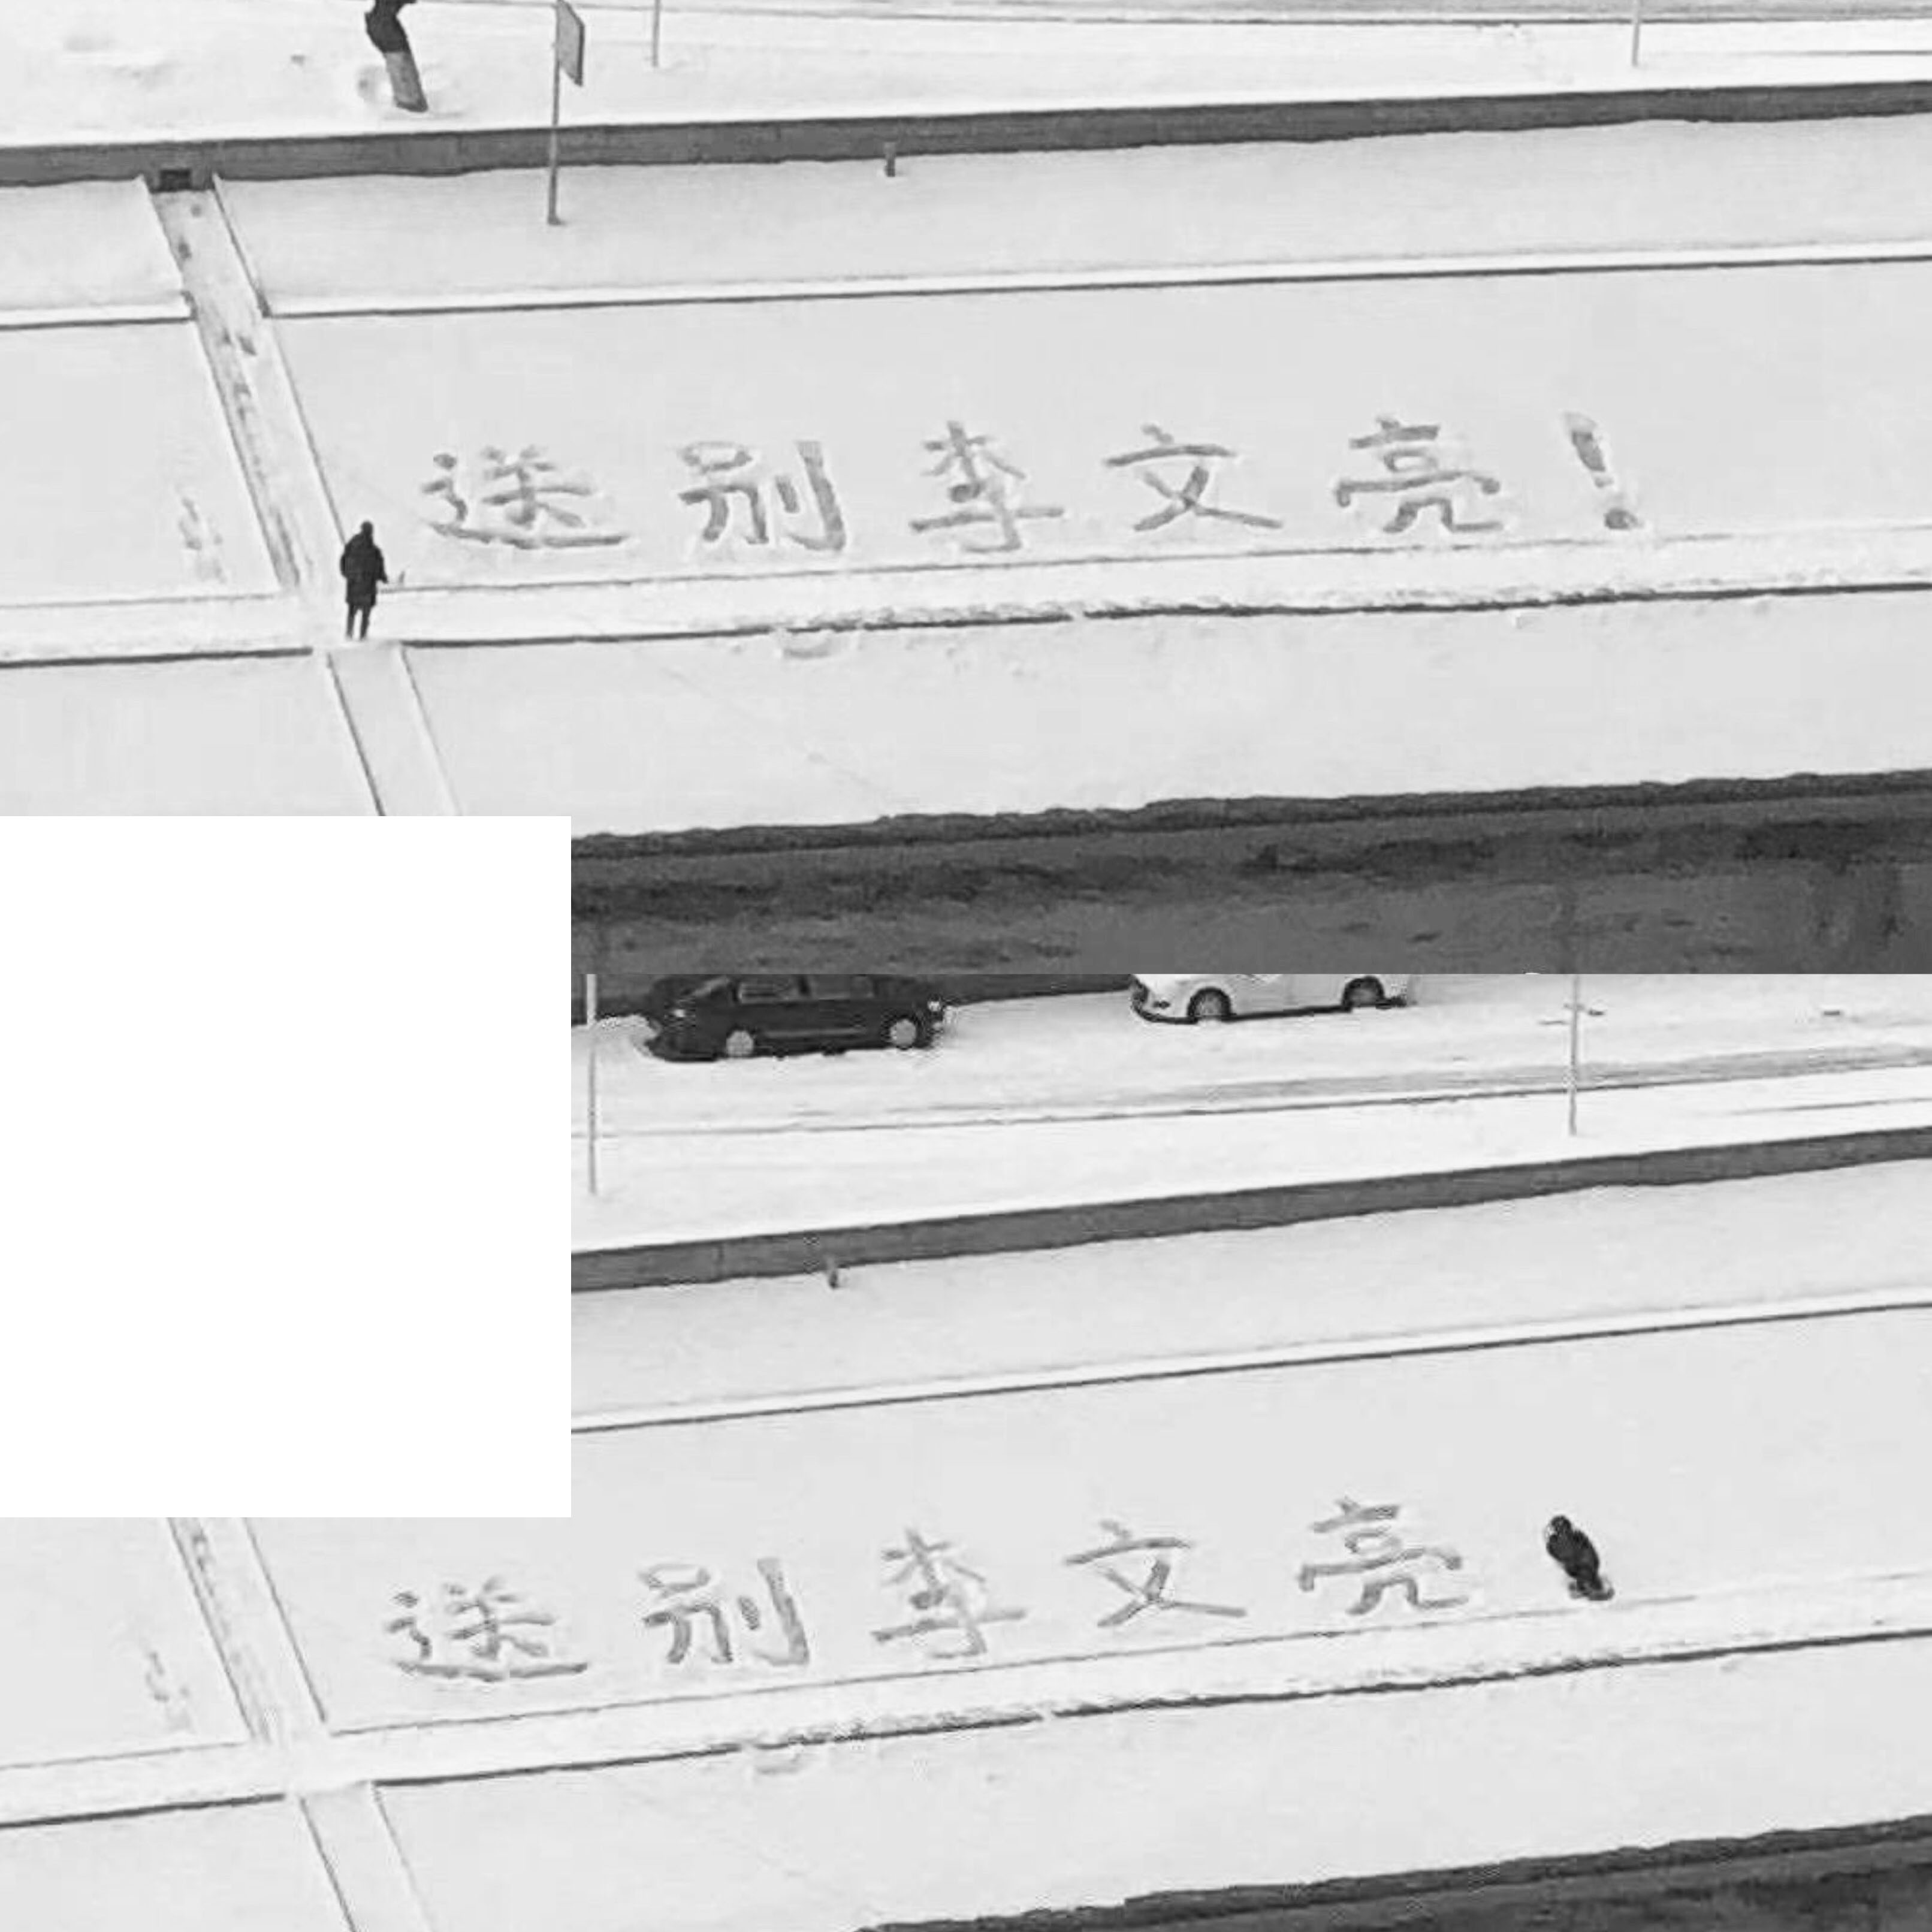 送别李文亮!
送别李文亮